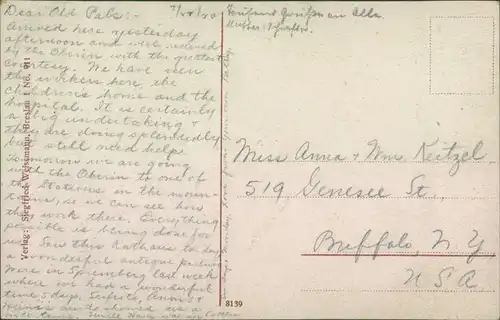 Dear Old Pals:- 7/28/20
Arrived here yesterday
afternoon and were received
by the Oberin with the greatest
courtesy. We have seen
the workers here, the
childrens home and the
hospital. It is certainly
a big undertaking +
they are doing splendidly
but still need help.
Tomorrow we are going
with the Oberin to one of
the Stations in the moun-
tains, so we can see how
they work there. Everything
possible is being done for
us. Saw this Rathaus to-day
a wonderful antique
Were in Spremberg last week
where we had a wonderful
time 5 days.
showed us a
Verlag: Siegfried Wehsmann, Breslau
8139
Miss Anna + Wm Keitzel.
519 Genesee St.,
Buffalo, N Y
U S A